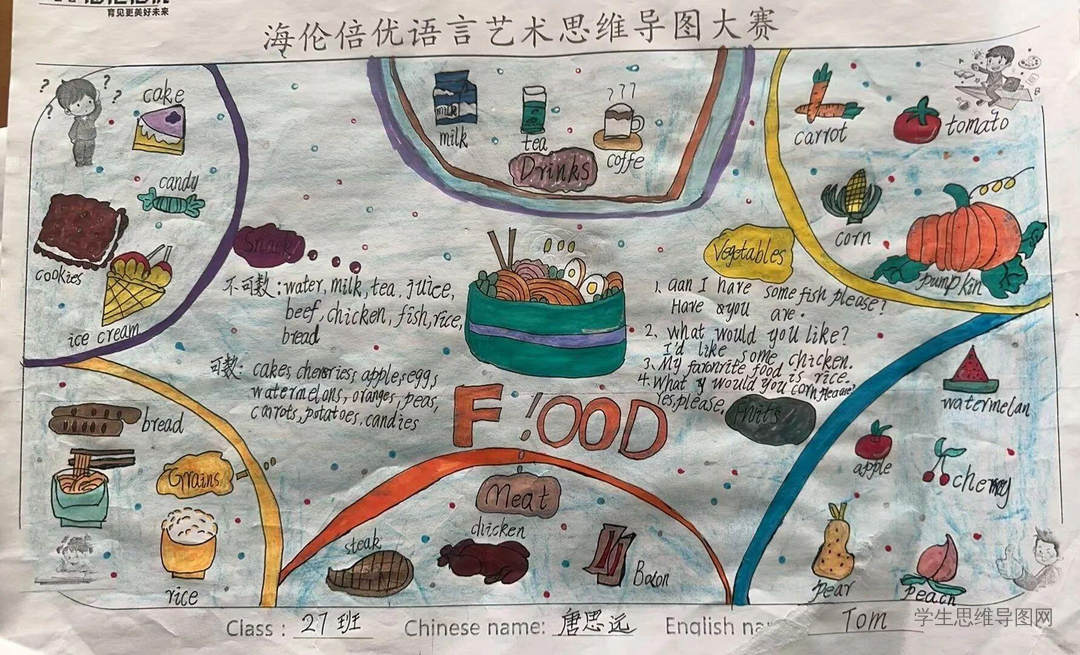 育见更美好未来
海伦倍优语言艺术思维导图大赛
cake
candy
cookies
ice cream
milk
milk
tea
coffe
Drinks
carrot
tomato
corn
pumpkin
Vegetables
不可数:water, milk, tea, juice,
beef, chicken, fish, rice,
bread
可数:cakes, cherries, apples, eggs,
watermelons, oranges, peas,
carrots, potatoes, candies
1. can I have some fish please?
Have you are.
2. what would you like?
I'd like some chicken.
3. My favorite food is rice.
4. what would you corn
Yes, please.
F!OOD
bread
Grains
rice
Meat
steak
chicken
Bacon
watermelan
apple
cherry
pear
peach
Class: 27班 Chinese name: 唐思远 English Tom
学生思维导图网